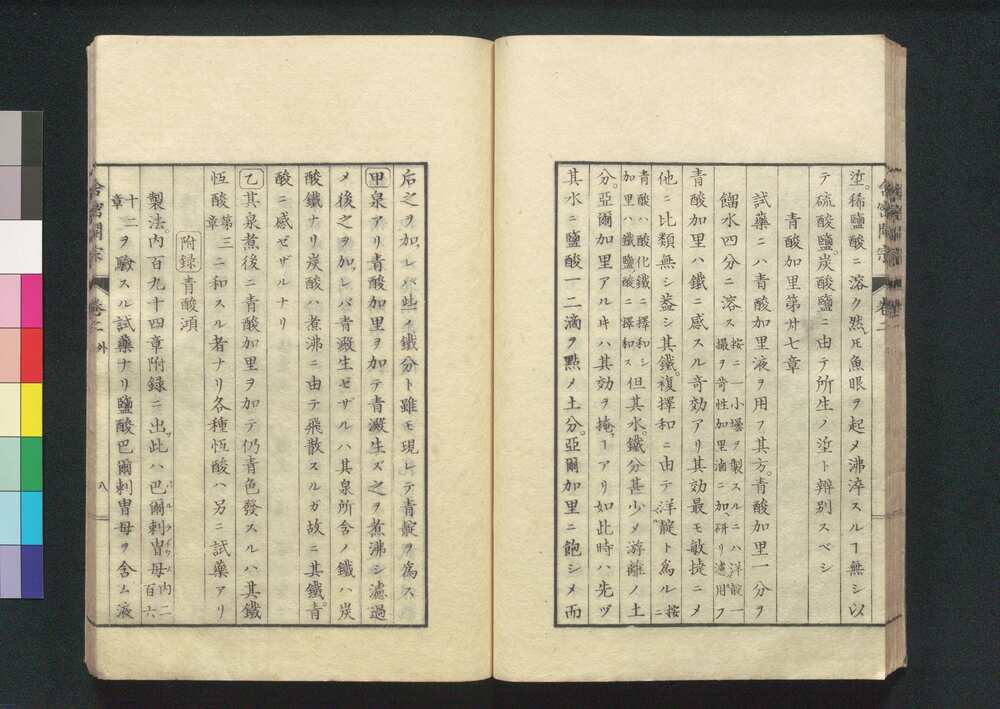 坌。稀鹽酸ニ溶ク然ㇳモ魚眼ヲ起メ沸淬スルヿ無シ以
テ硫酸鹽。炭酸鹽ニ由テ所生ノ坌ト辨別スベシ
青酸加里第廿七章
試藥ニハ青酸加里液ヲ用フ其方。青酸加里一分ヲ
餾水四分ニ溶ス
按ニ一小壜ヲ製スルニハ洋靛一
撮ヲ苛性加里滷ニ加研リ濾用フ
青酸加里ハ鐵ニ感スル竒効アリ其効最モ敏捷ニメ
他ニ比類無シ葢シ其鐵。複擇和ニ由テ洋靛ト爲ル
按ニ
青酸ハ酸化鐵ニ擇和シ
加里ハ鐵鹽酸ニ擇和ス
但其水。鐵分甚少メ游離ノ土
分。亞爾加里アル片ハ其効ヲ掩フヿアリ如此時ハ先ヅ
其水ニ鹽酸一二滴ヲ點メ土分。亞爾加里ニ飽シメ而
后之ヲ加レバ些ノ鐵分ト雖モ現レテ青靛ヲ爲ス
甲泉アリ青酸加里ヲ加テ青澱生ズ之ヲ煮沸シ濾過
メ後之ヲ加レバ青澱生ゼザルハ其泉所含ノ鐵ハ炭
酸鐵ナリ炭酸ハ煮沸ニ由テ飛散スルガ故ニ其鐵。青
酸ニ感ゼザルナリ
乙其泉煮後ニ青酸加里ヲ加テ仍青色發スルハ其鐵
恆酸
第三章
ニ和スル者ナリ各種恆酸ハ另ニ試藥アリ
附録 青酸澒
製法。内百九十四章附録ニ出此ハ巴爾剌冑母
内二百六
十二章
ヲ驗スル試藥ナリ鹽酸巴爾剌冑母ヲ含ム液
舎密開宗
卷之二
外
八